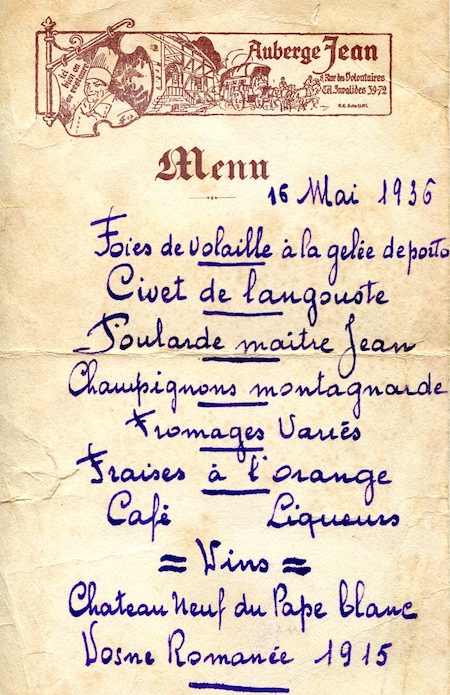 Auberge Jean
Rue des Volontaires
Tél. Invalides 39-72
Ici
bien on
se restaure
Menu
16 Mai 1936
Foies de volaille à la gelée de porto
Civet de langouste
Poularde maitre Jean
Champignons montagnarde
Fromages Variés
Fraises à l'orange
Café Liqueurs
= Vins =
Chateau Neuf du Pape blanc
Vosne Romanée 1915